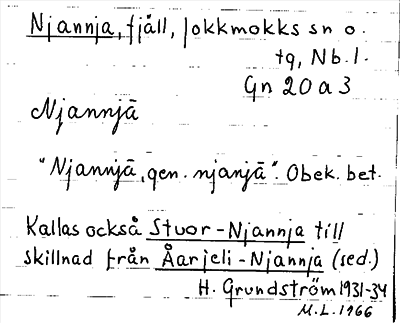 Njannja, fjäll, Jokkmokks sn o.
tg, Nb.l.
Gn 20 a 3
Njannjā
"Njannjā, gen. njanjā". Obek. bet.
Kallas också Stuor-Njannja till
skillnad från Åarjeli-Njannja (sed.)
H. Grundström 1931-34
M.L. 1966